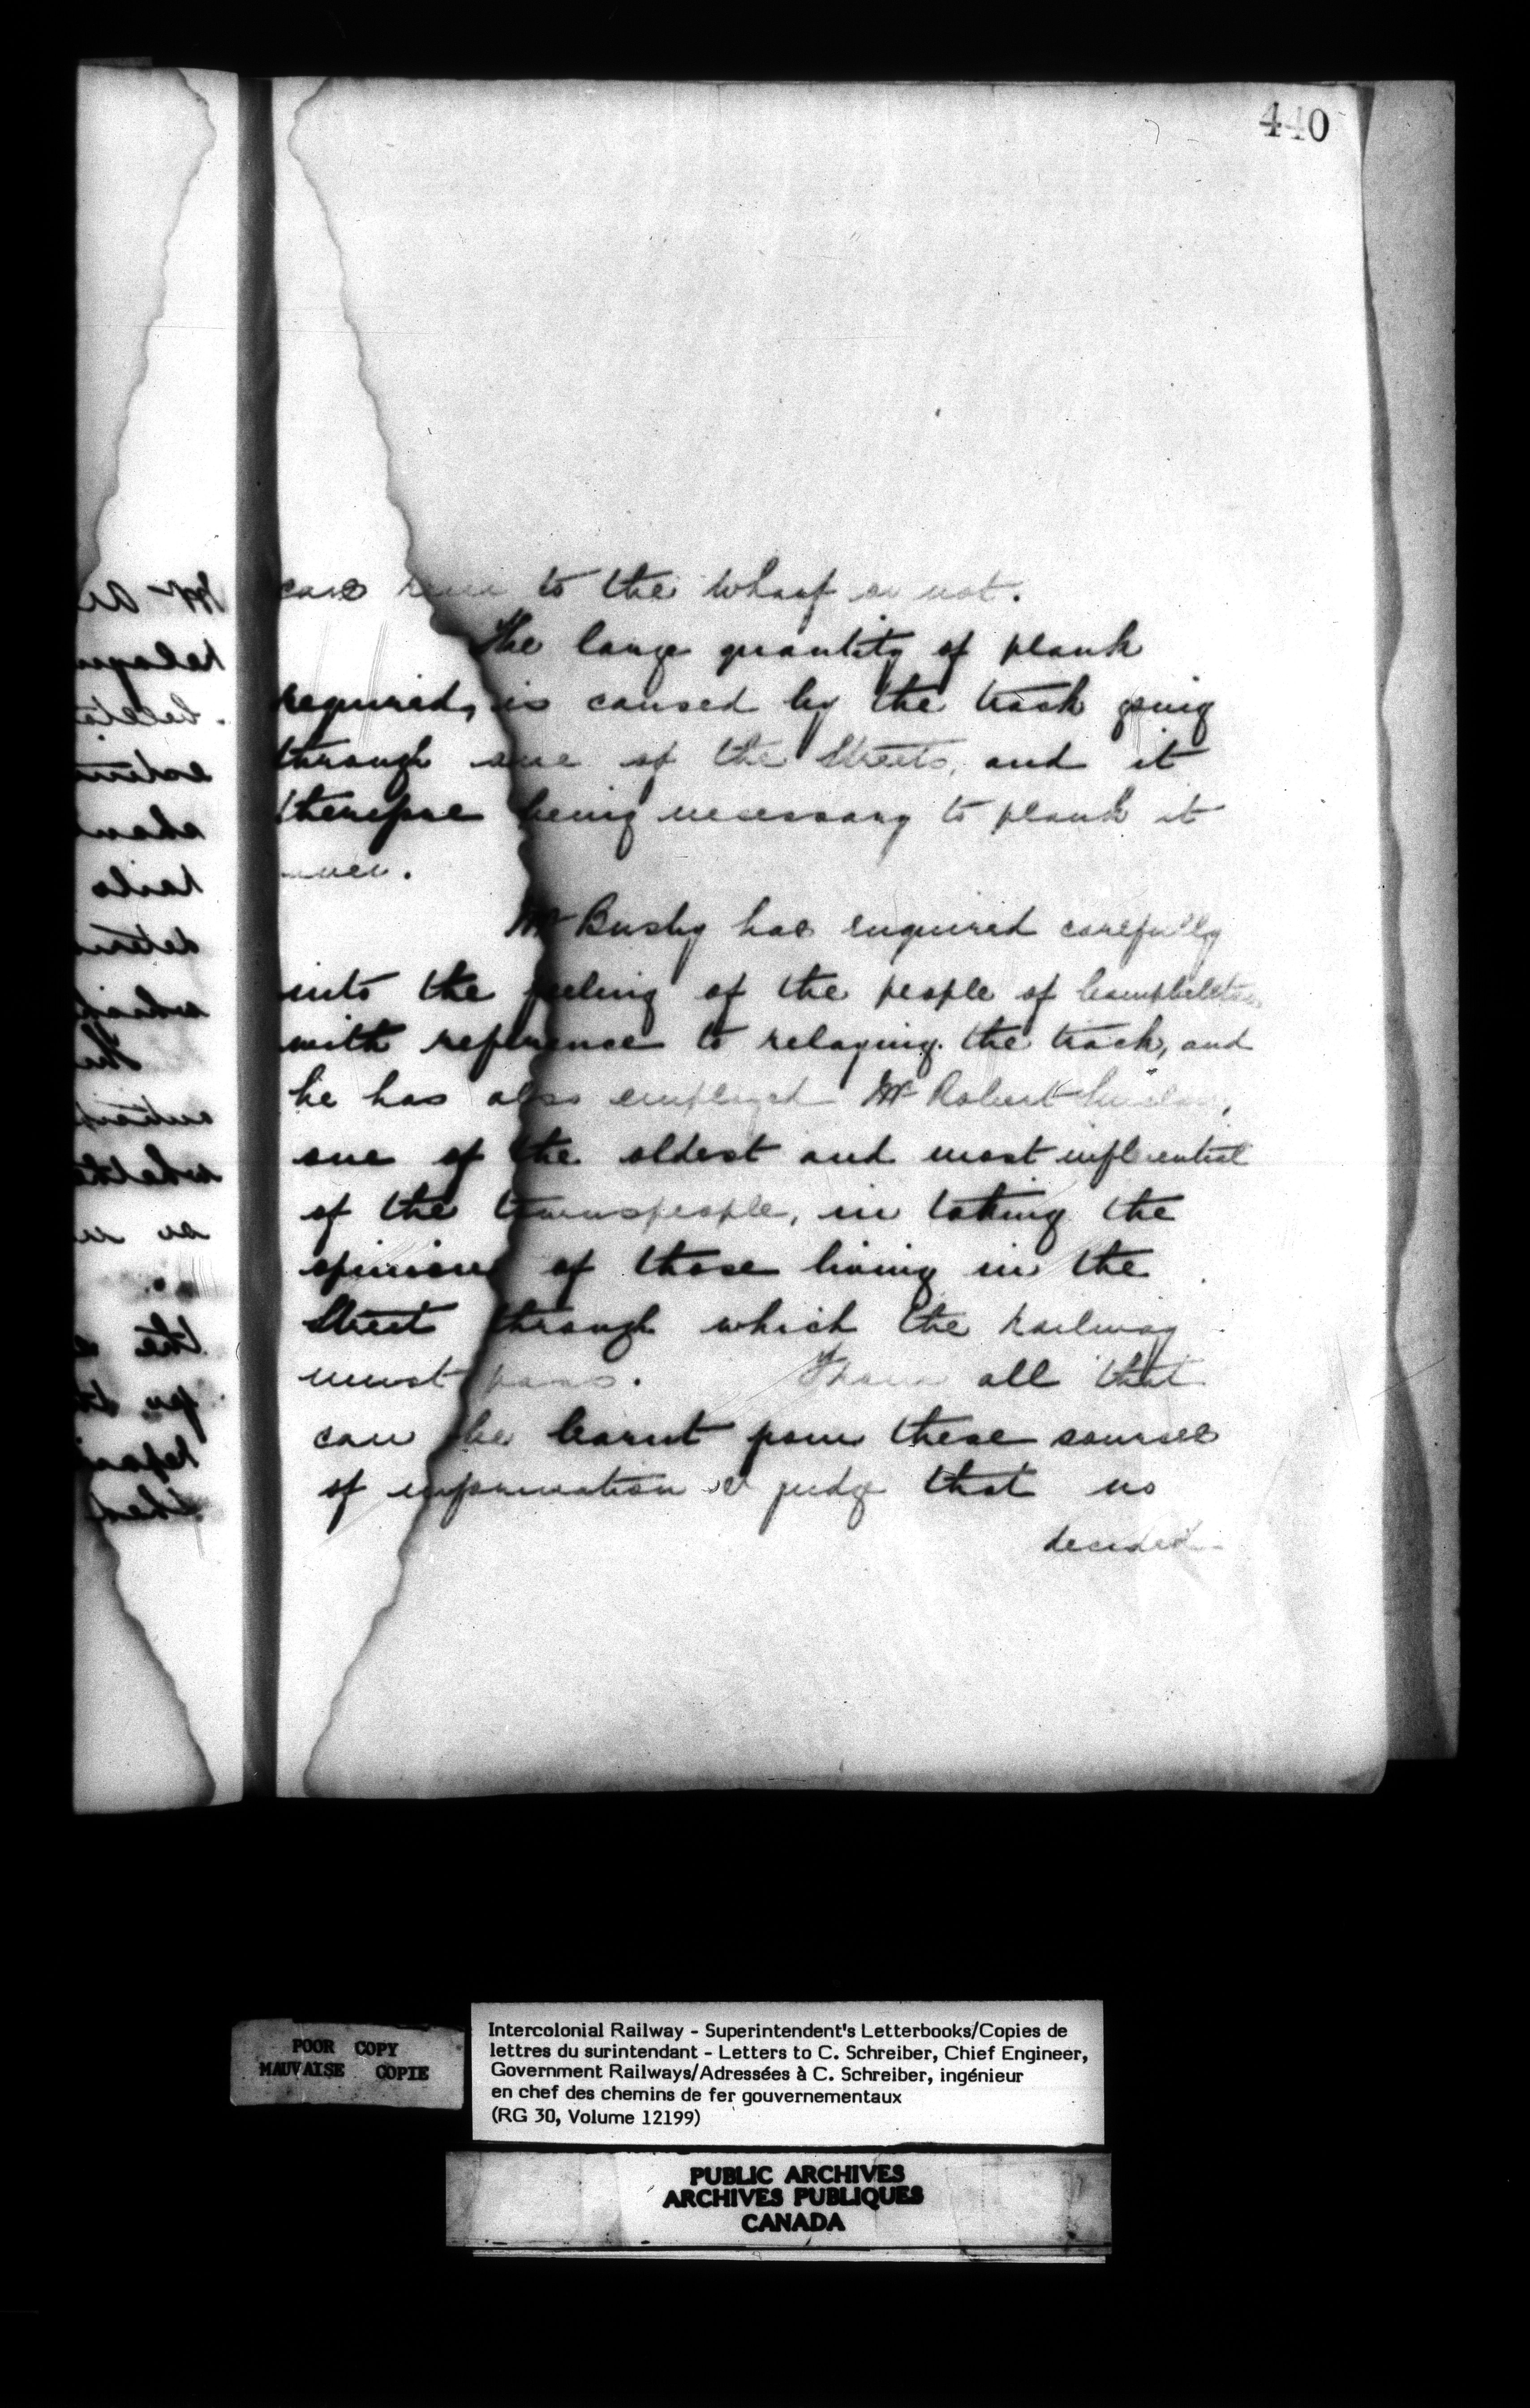 440
cars run to the wharf or not.
The large quantity of plank
required, is caused by the track going
through one of the Streets, and it
therefore being necessary to plank it
over.
Mr Busby has enquired carefully
into the feeling of the people of Campbellton
with reference to relaying the track, and
he has also employed Mr Robert
one of the oldest and most influential
of the townspeople, in taking the
opinions of those living in the
Street through which the Railway
must pass. From all that
can be learnt from these sources
of information I judge that no
decided
POOR COPY
MAUVAISE COPIE
Intercolonial Railway - Superintendent's Letterbooks/Copies de
lettres du surintendant - Letters to C. Schreiber, Chief Engineer,
Government Railways/Adressées à C. Schreiber, ingénieur
en chef des chemins de fer gouvernementaux
(RG 30, Volume 12199)
PUBLIC ARCHIVES
ARCHIVES PUBLIQUES
CANADA